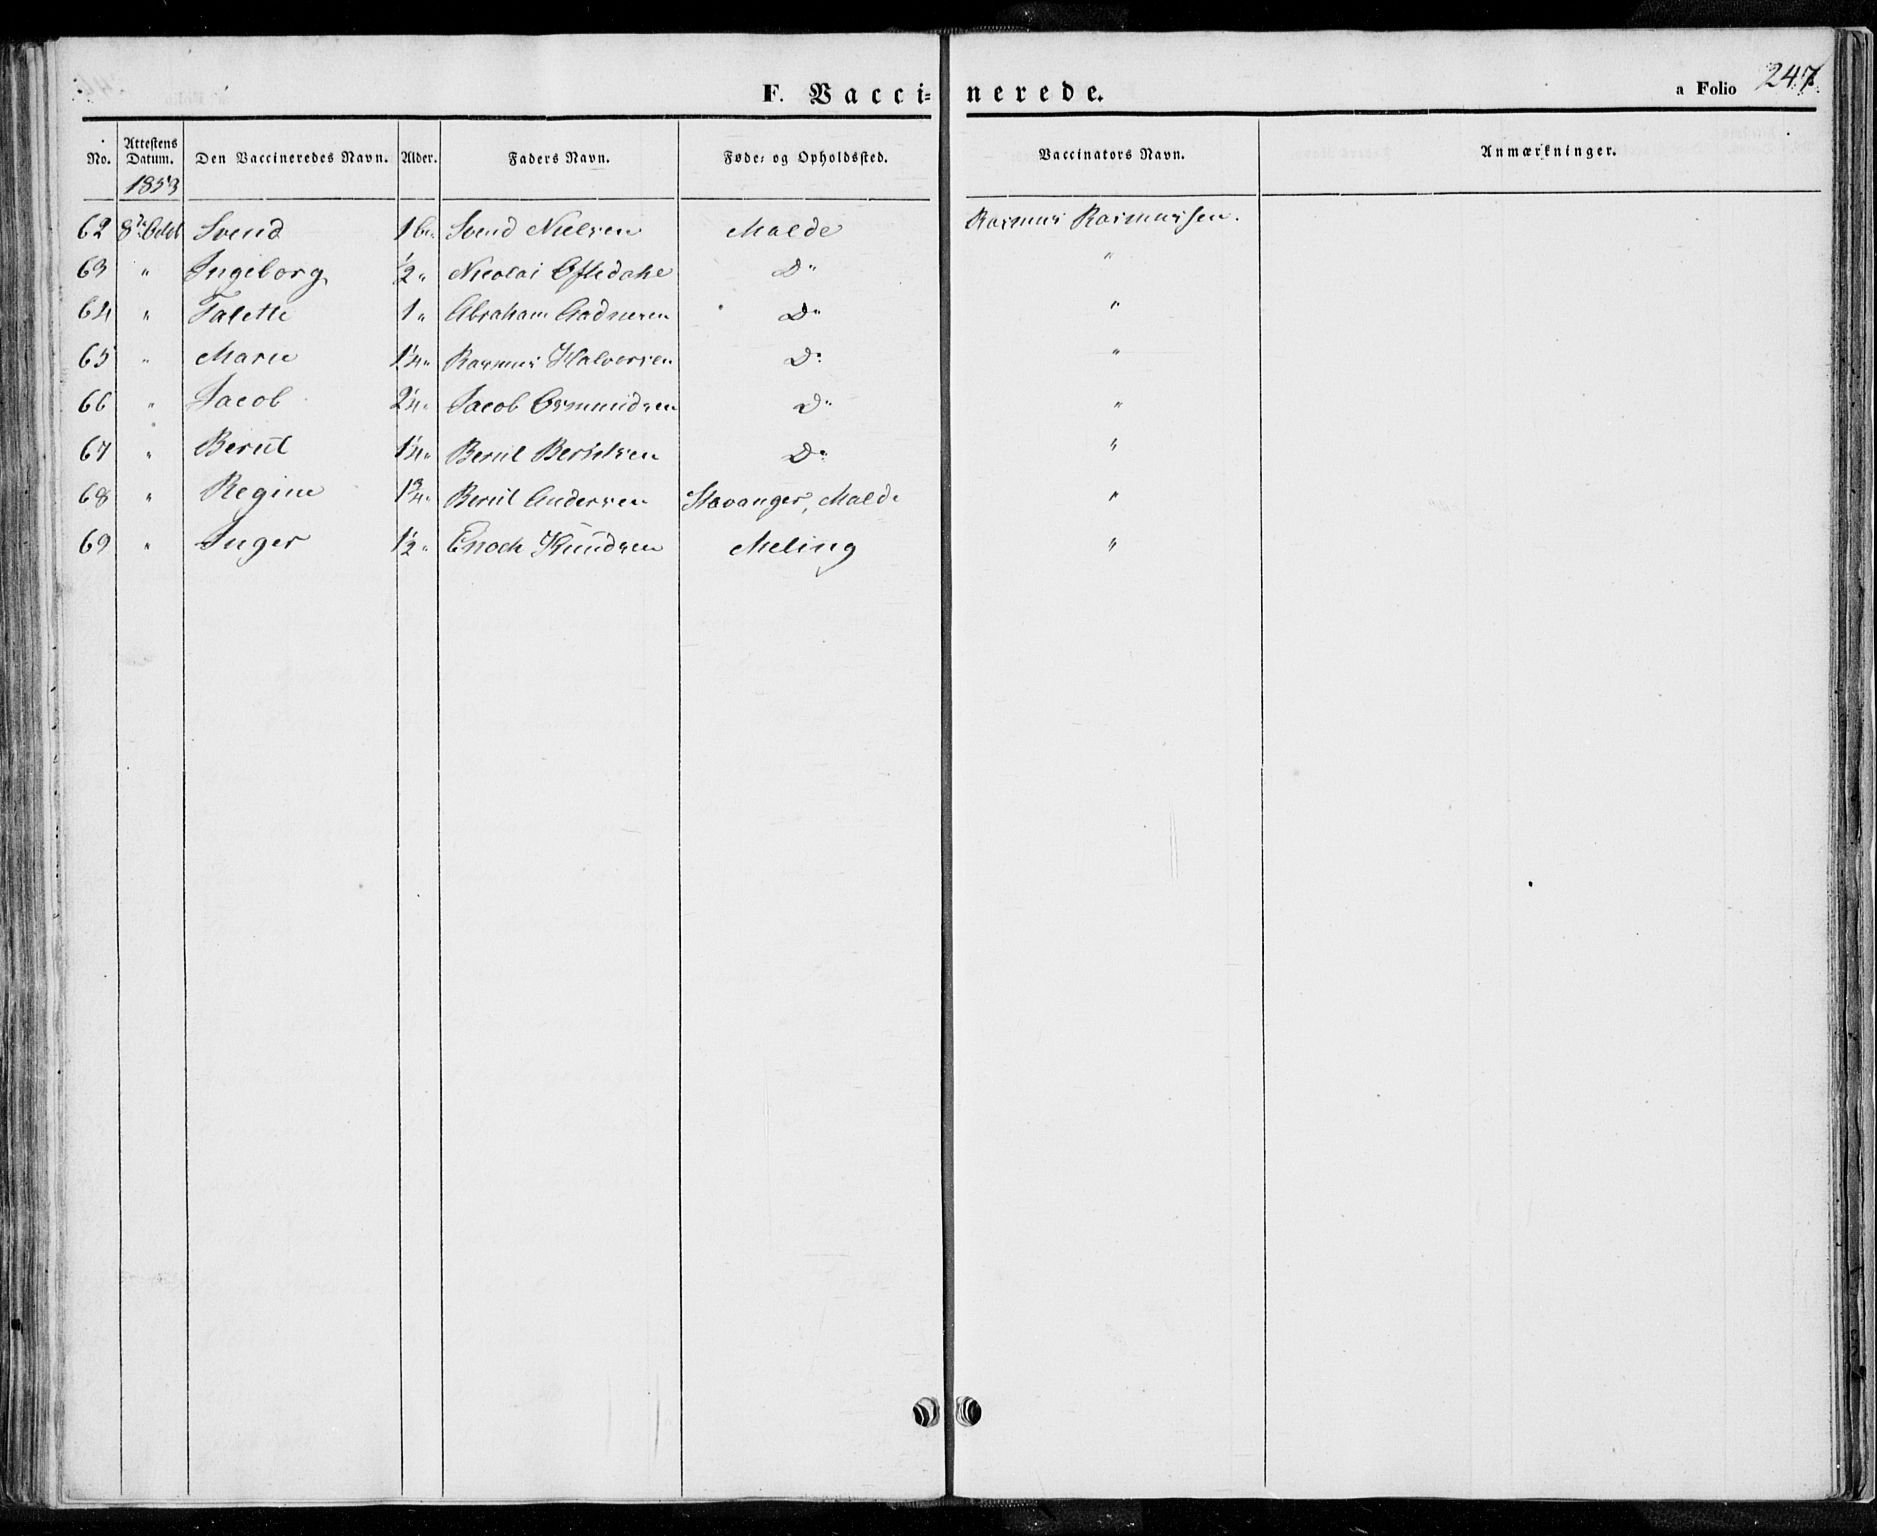 F. Vaccinerede. a Folio 247.
No. Attestens Datum. Den Vaccineredes Navn. Alder. Faders Navn. Føde= og Opholdssted. Vaccinators Navn. Anmærkninger.
1853
62 8de Octbr Svend 1 Svend Nielsen Malde Rasmus Rasmussen.
63 " Ingeborg ½ " Nicolai Oftedahl Do "
64 " Talette 1 " Abraham Do "
65 " Marie 1¼ " Rasmus Halvorsen Do "
66 " Jacob 2¼ " Jacob Osmundsen Do "
67 " Berul 1¼ " Berul Do "
68 " Regine 1¾ " Berul Andersen Stavanger, Malde "
69 " Inger 1½ " Enoch Knudsen Meling "